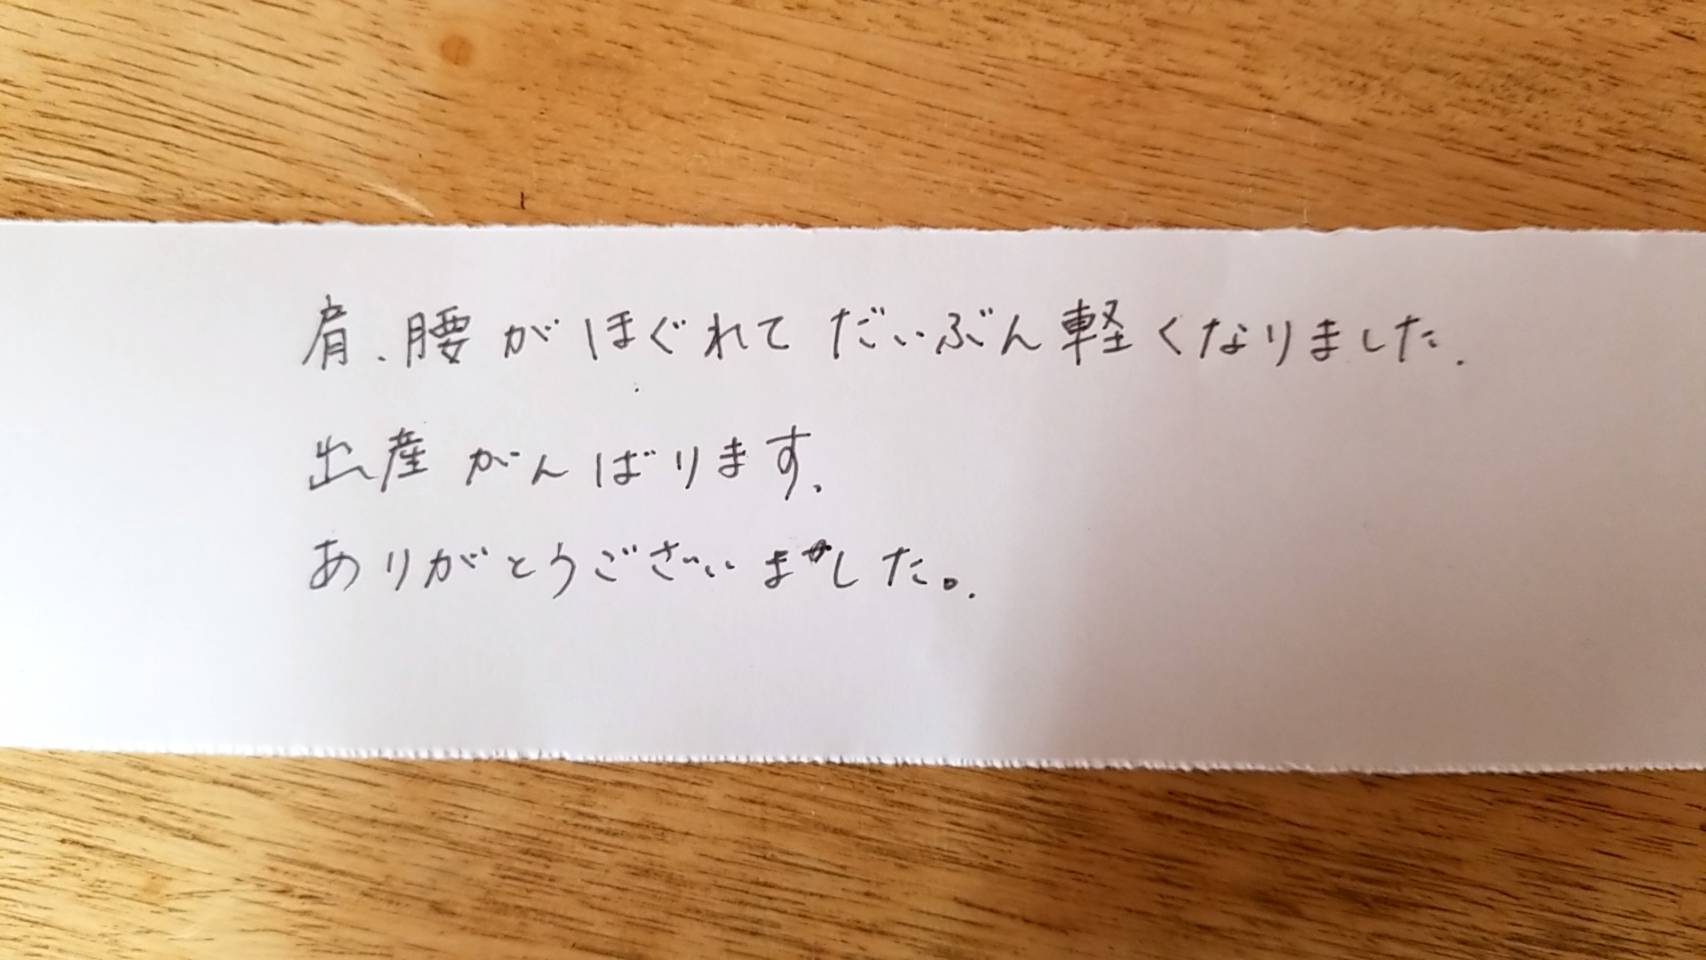 肩、腰がほぐれてだいぶん軽くなりました.
出産がんばります.
ありがとうございました。.